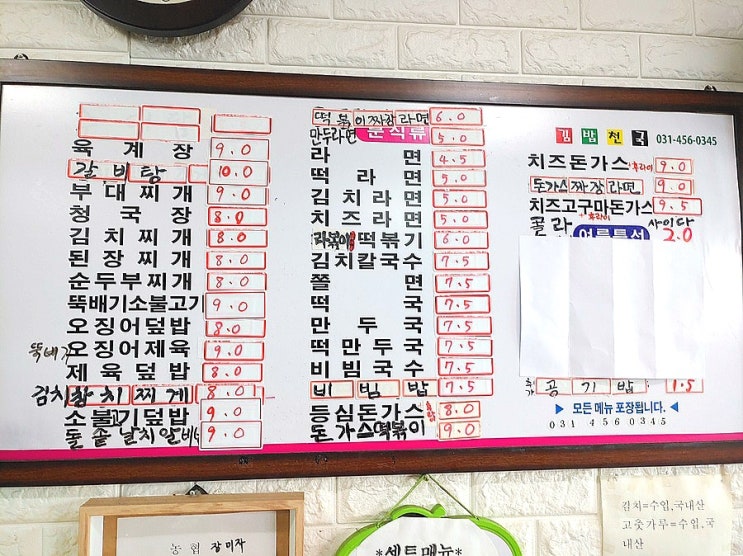 육계장 9.0
갈비탕 10.0
부대찌개 9.0
청국장 8.0
김치찌개 8.0
된장찌개 8.0
순두부찌개 8.0
뚝배기소불고기 9.0
오징어덮밥 8.0
오징어제육 9.0
제육덮밥 8.0
김치참치찌게 8.0
소불고기덮밥 9.0
돌솥날치알비 9.0
떡볶이짜장라면 6.0
만두라면 분식류 5.0
라면 4.5
떡라면 5.0
김치라면 5.0
치즈라면 5.0
라볶이 떡볶기 6.0
김치칼국수 7.5
쫄면 7.5
떡국 7.5
만두국 7.5
떡만두국 7.5
비빔국수 7.5
비빔밥 7.5
등심돈가스 8.0
돈가스떡볶이 9.0
김밥천국 031-456-0345
치즈돈가스 후라이 9.0
돈가스짜장라면 9.0
치즈고구마돈가스 9.5
콜라 후라이 사이다 2.0
여름특선
추가 공기밥 1.5
▶ 모든 메뉴 포장됩니다. ◀
031 456 0345
농협 장미자
*세트메뉴*
김치=수입,국내산
고춧가루=수입,국
내산